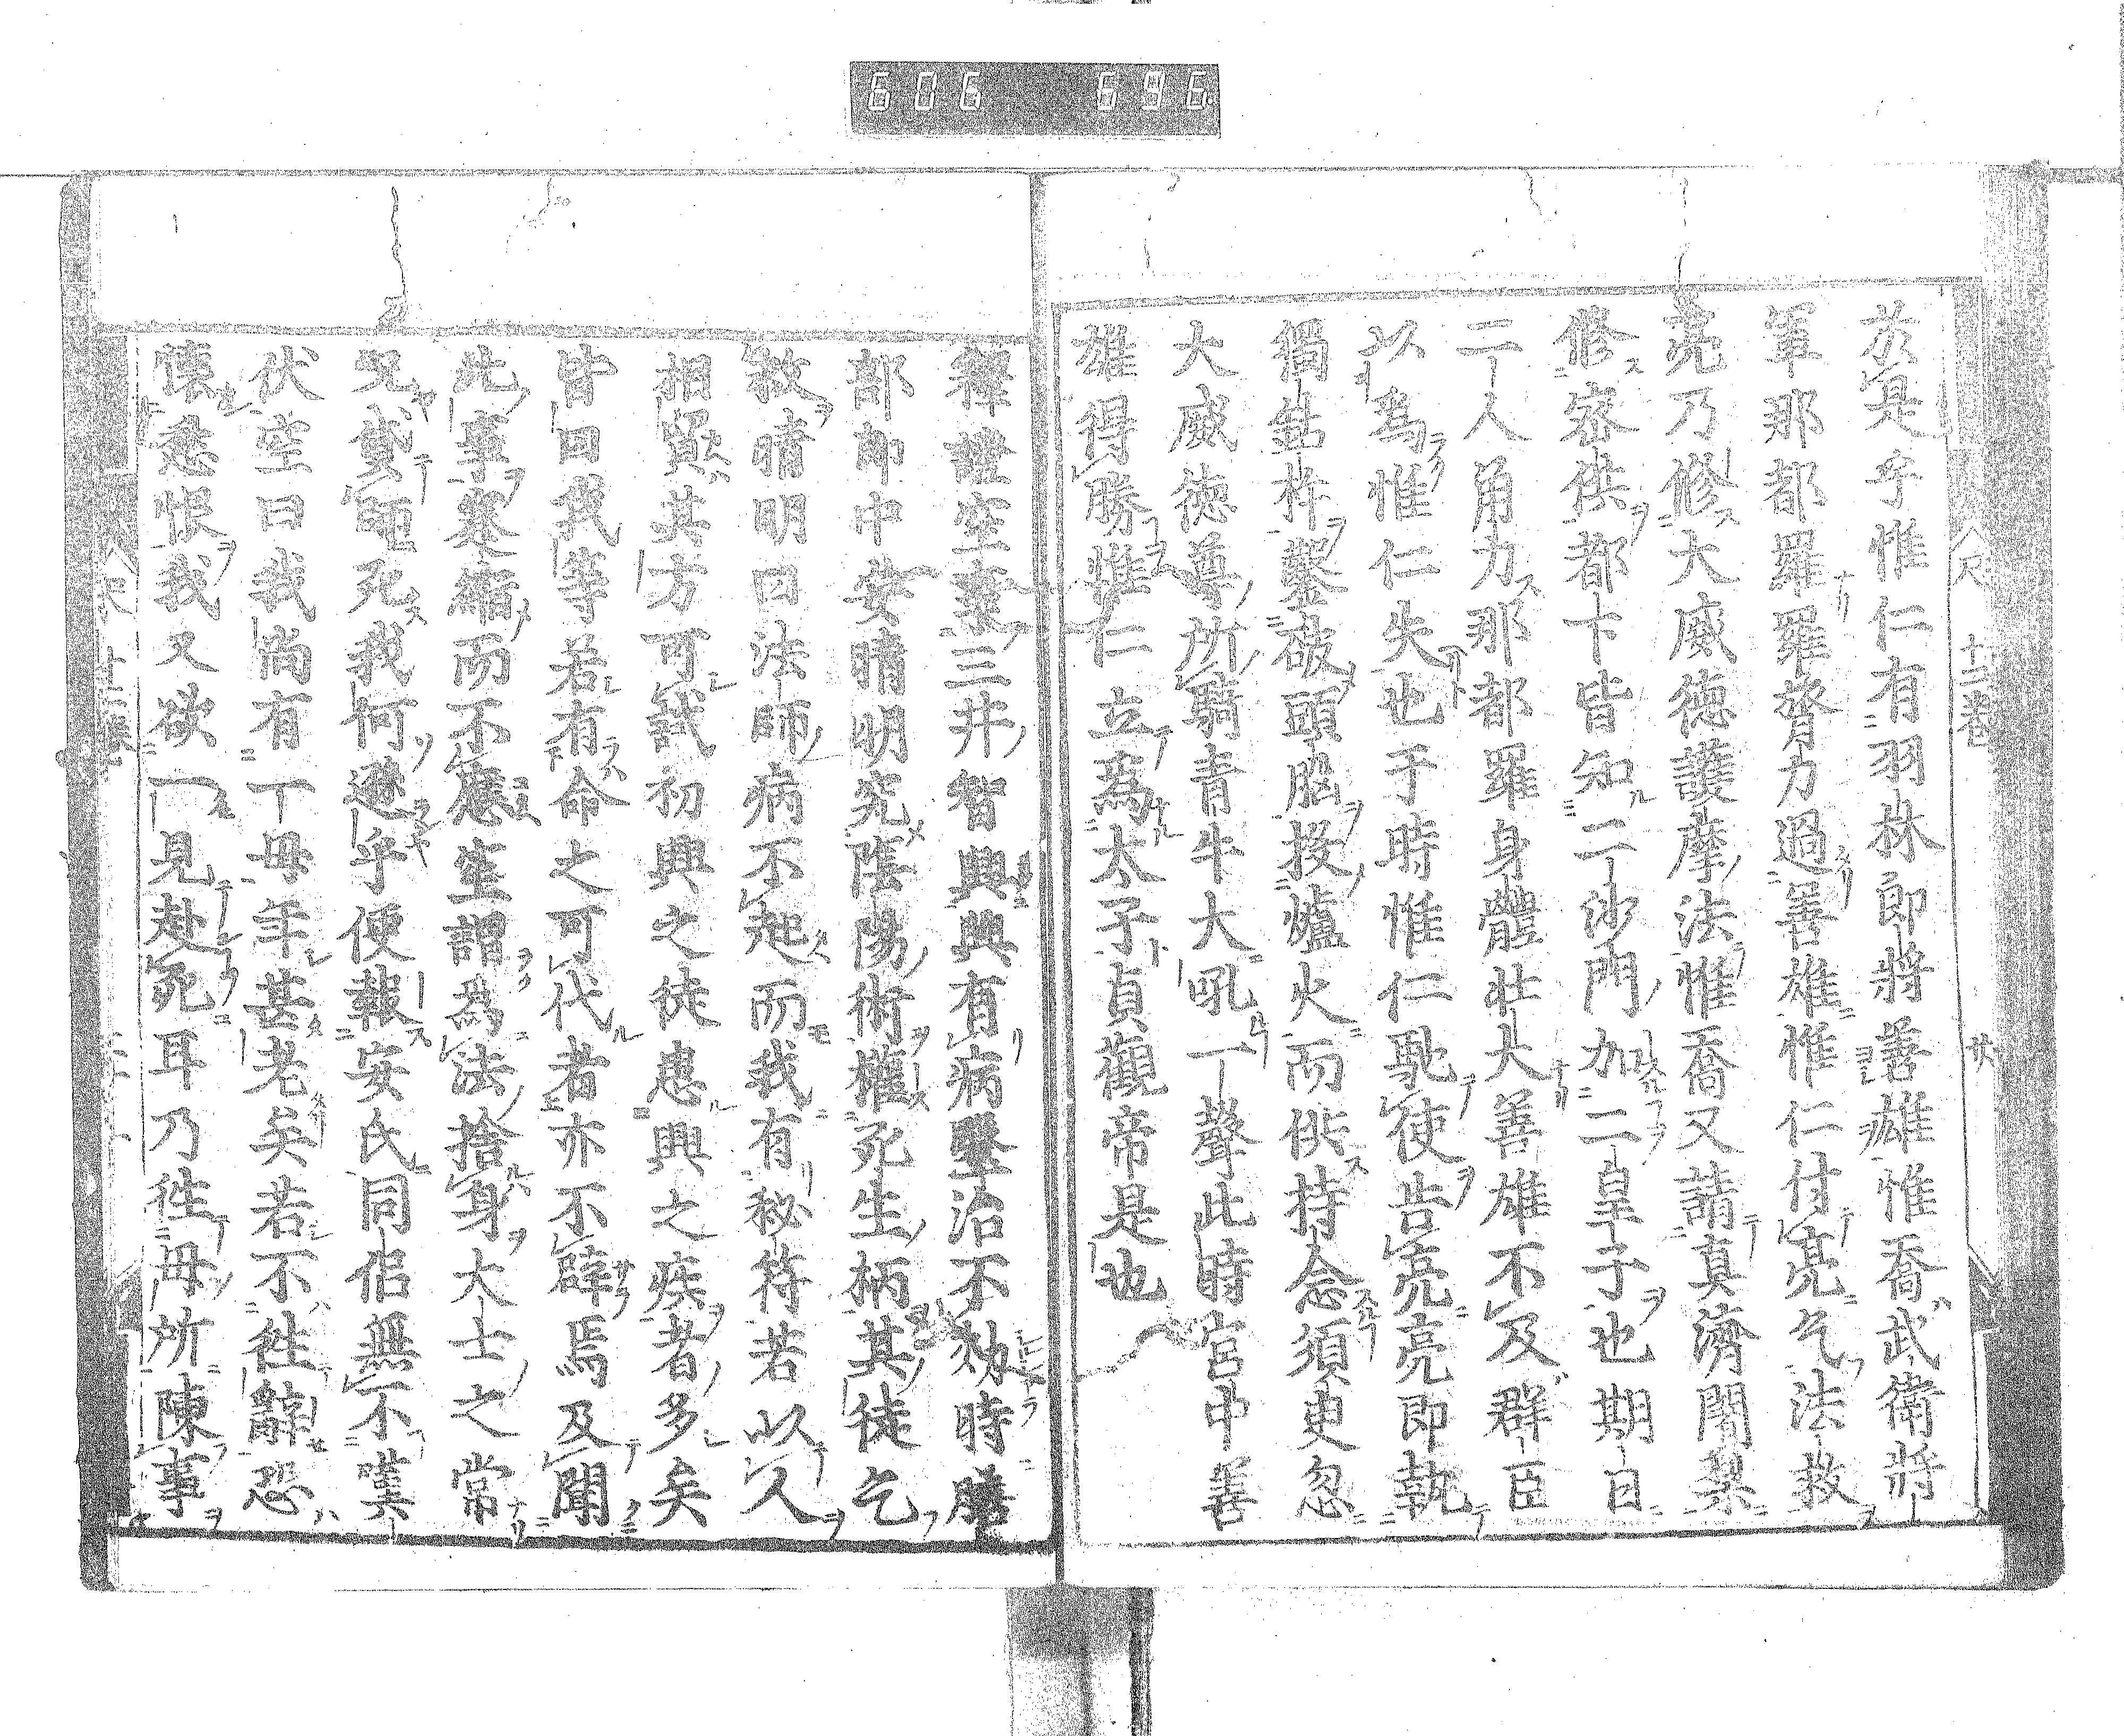 606 696
於是乎惟仁有羽林郎將善雄惟喬武衛將
軍那都羅羅膂力過善雄惟仁付亮乞法救
亮乃修大威德護摩法惟喬又請真濟闍梨
修密供都卞皆知二沙門加二皇子也期日
二人角力那都羅身體壯大善雄不及群臣
以為惟仁失也于時惟仁馳使告亮亮即執
獨鈷杵鑿破頭腦投爐火而供持念須臾忽
大威德尊所騎青牛大吼一聲此時宮中善
雄得勝惟仁立為太子貞觀帝是也
釋證空業三井智興興有病醫治不効時膳
部郎中安晴明究陰陽術權死生柄其徒乞
救晴明曰法師病不起而我有秘符若以人
相貿其方可試初興之徒患興之疾者多矣
皆曰我等若有命之可代者亦不辟焉及聞
此事寒縮而不應空謂為法捨身大士之常
況貸師死我何遜乎便報安氏同侶無不嘆
伏空曰我尚有一母年甚老矣若不往辭恐
懷愁恨我又欲一見赴死耳乃往母所陳事